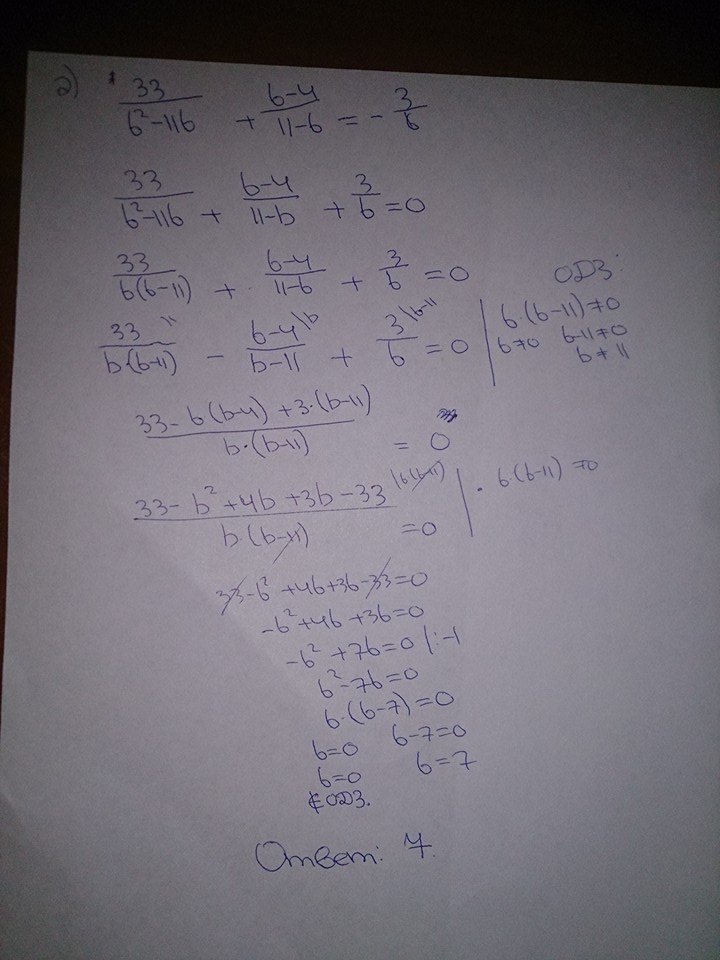 2) 33/(b²-11b) + (b-4)/(11-b) = - 3/b
33/(b²-11b) + (b-4)/(11-b) + 3/b = 0
33/(b(b-11)) + (b-4)/(11-b) + 3/b = 0 ОДЗ:
33/(b·(b-11)) - (b-4)/(b-11) |b + 3/b |b-11 = 0 | b·(b-11)≠0
b≠0 b-11≠0
b≠11
(33-b(b-4)+3·(b-11))/(b·(b-11)) = 0
(33-b²+4b+3b-33)/(b·(b-11)) |b(b-11) = 0 | · b·(b-11)≠0
33-b²+4b+3b-33=0
-b²+4b+3b=0
-b²+7b=0 |:-1
b²-7b=0
b·(b-7)=0
b=0 b-7=0
b=0 b=7
∉ ОДЗ.
Ответ: 7.